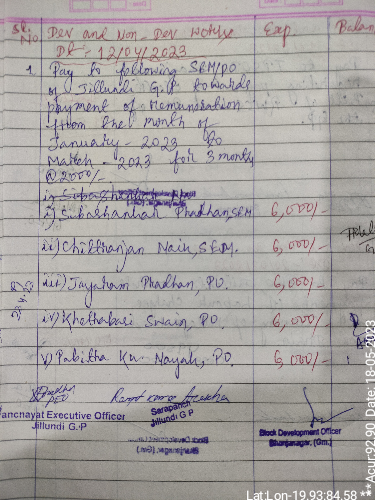 Sl. No. Dev and Non-Dev Exp Balan
Dt - 12/04/2023
1. Pay to following SEM/PO
of Jillundi G.P towards
payment of Remuneration
from the month of
January - 2023 to
March - 2023 for 3 month
@ 2000/-
i) Subashankar Phadhan, SEM 6,000/-
ii) Chittaranjan Naik, SEM. 6,000/-
iii) Jayaram Phadhan, PO. 6,000/-
iv) Khethabasi Swain, PO. 6,000/-
v) Pabitha Ku. Nayak, PO. 6,000/-
PEO
Panchayat Executive Officer
Jillundi G.P
Sarapanch
Jillundi G P
Block Development Officer
Bhanjanagar, (Gm.)
Lat:Lon-19.93:84.58 **Acu:92.90 Date:18-05-2023